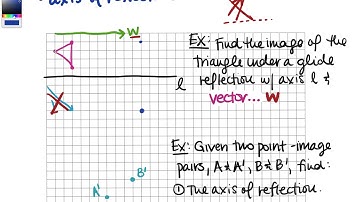 W
Ex: Find the image of the
triangle under a glide
reflection w/ axis l &
vector... W
l
Ex: Given two point-image
pairs, A & A', B & B', find:
① The axis of reflection.
B'
A'